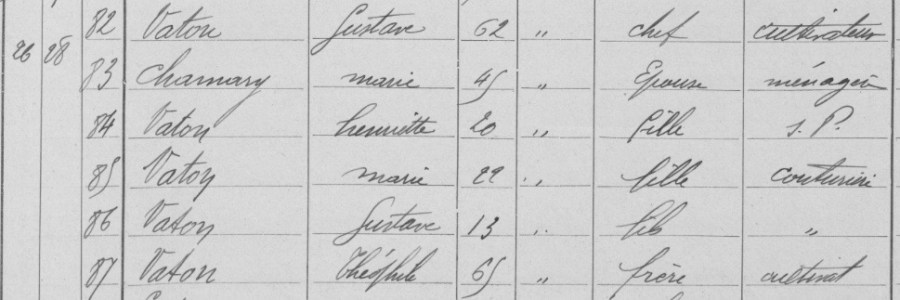 82 Vaton Gustave 62 " chef cultivateur
26 28 83 Chamary marie 45 " Epouse ménagère
84 Vaton henriette 20 " fille s. P.
85 Vaton marie 22 " fille couturière
86 Vaton Gustave 13 " fils "
87 Vaton Théophile 65 " frère cultivat